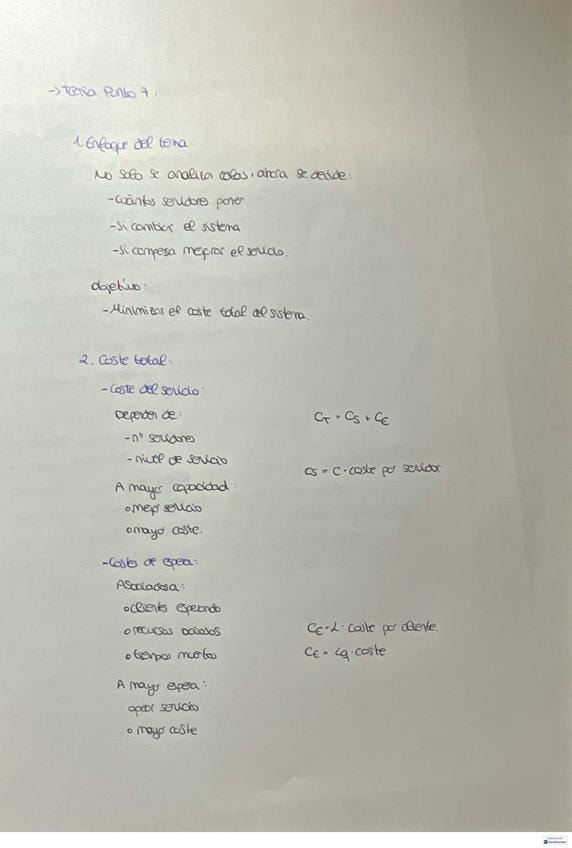 → Teoría Punto 7:
1. Enfoque del tema
No solo se analizan colas, ahora se decide:
- Cuántos servidores poner
- Si cambiar el sistema
- Si compensa mejorar el servicio.
Objetivo:
- Minimizar el coste total del sistema.
2. Coste total:
- Coste del servicio:
Depende de:
CT = CS + CE
- nº servidores
- nivel de servicio
CS = C · coste por servidor
A mayor capacidad:
o mejor servicio
o mayor coste.
- Costes de espera:
Asociados a:
o clientes esperando
o recursos parados
CE = L · coste por cliente.
o tiempos muertos
CE = Lq · coste
A mayor espera:
o peor servicio
o mayor coste